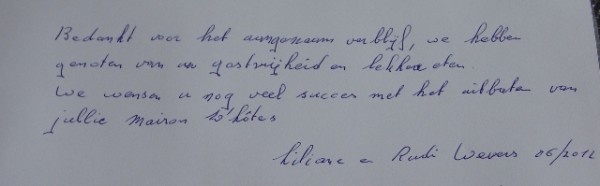 Bedankt voor het aangenaam verblijf, we hebben
genoten van uw gastvrijheid en lekker eten.
We wensen u nog veel succes met het uitbaten van
jullie maison d'hôtes
Liliane en Rudi Wevers 06/2012